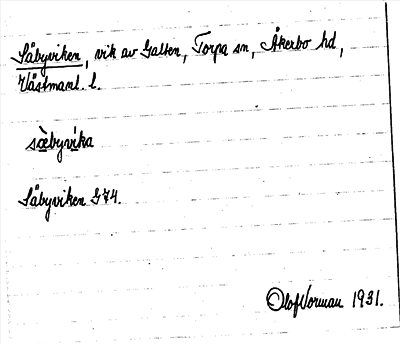 Såbyviken, vik av Galten, Torpa sn, Åkerbo hd,
Västmanl. l.
sæ̀byvika
Såbyviken G 74.
Olof Norman 1931.